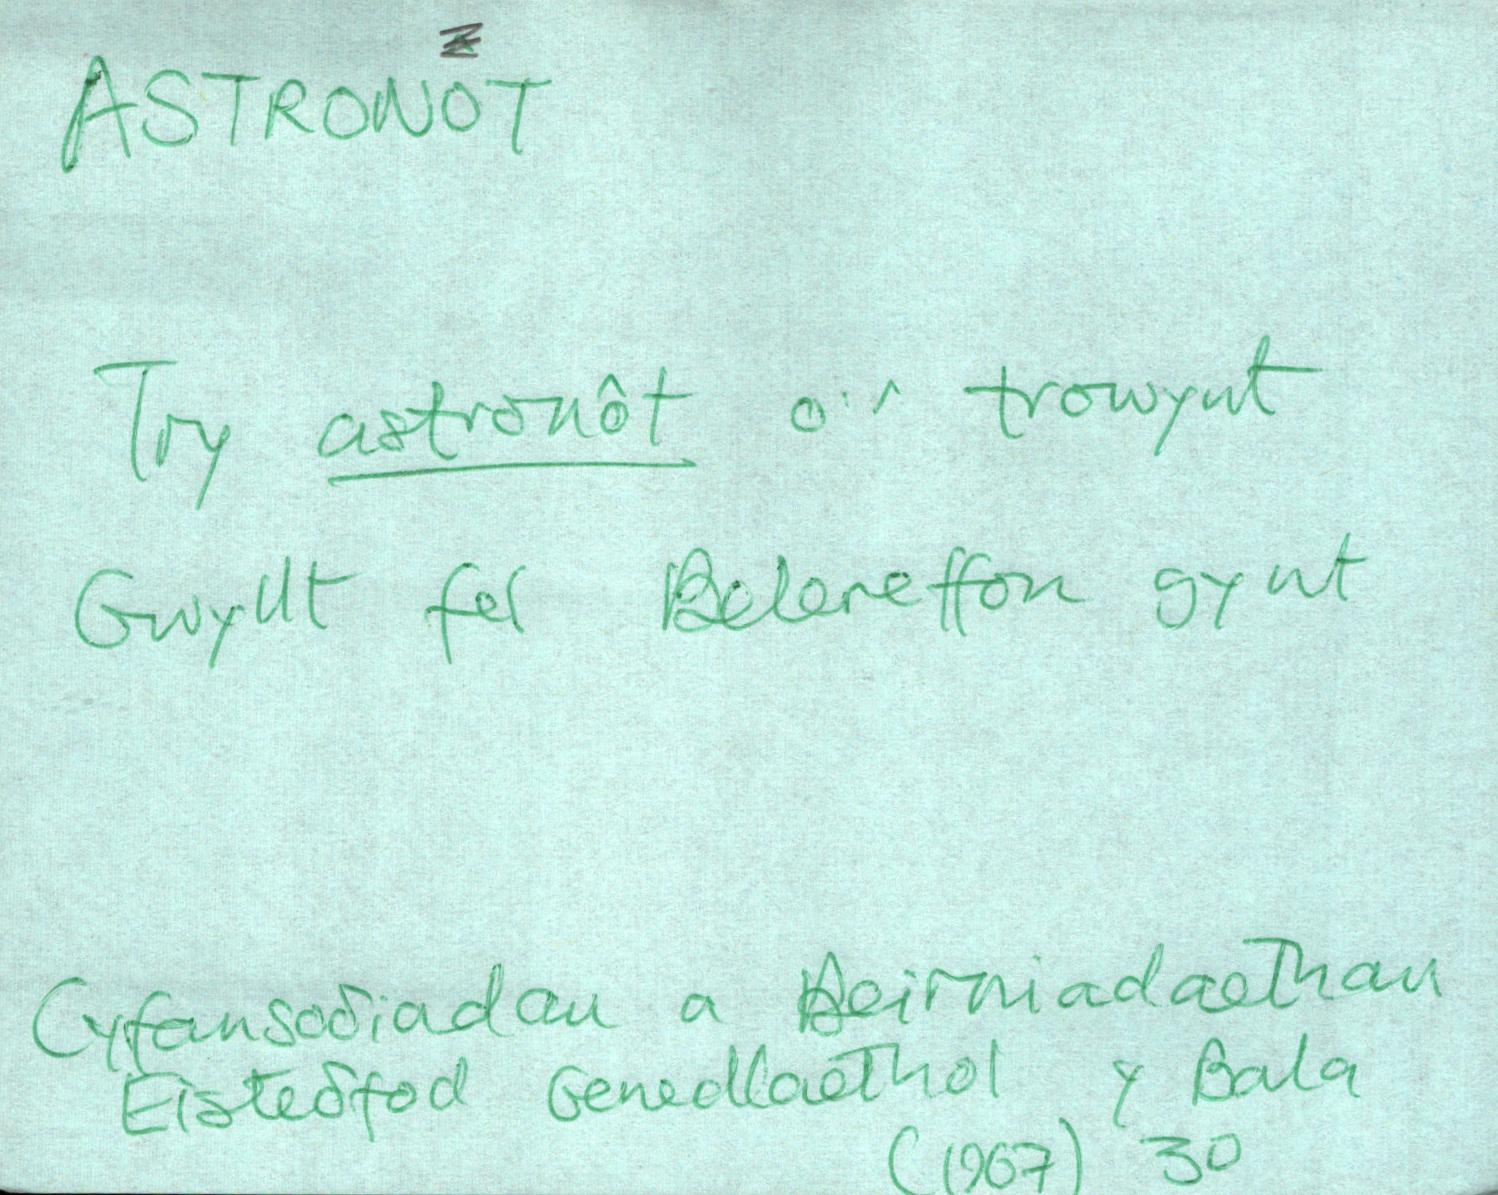 ASTRONOT
Try astronôt o'r trowynt
Gwyllt fel Belereffon gynt
Cyfansoδiadau a Beirniadaethau
Eisteδfod Genedlaethol y Bala
(1967) 30